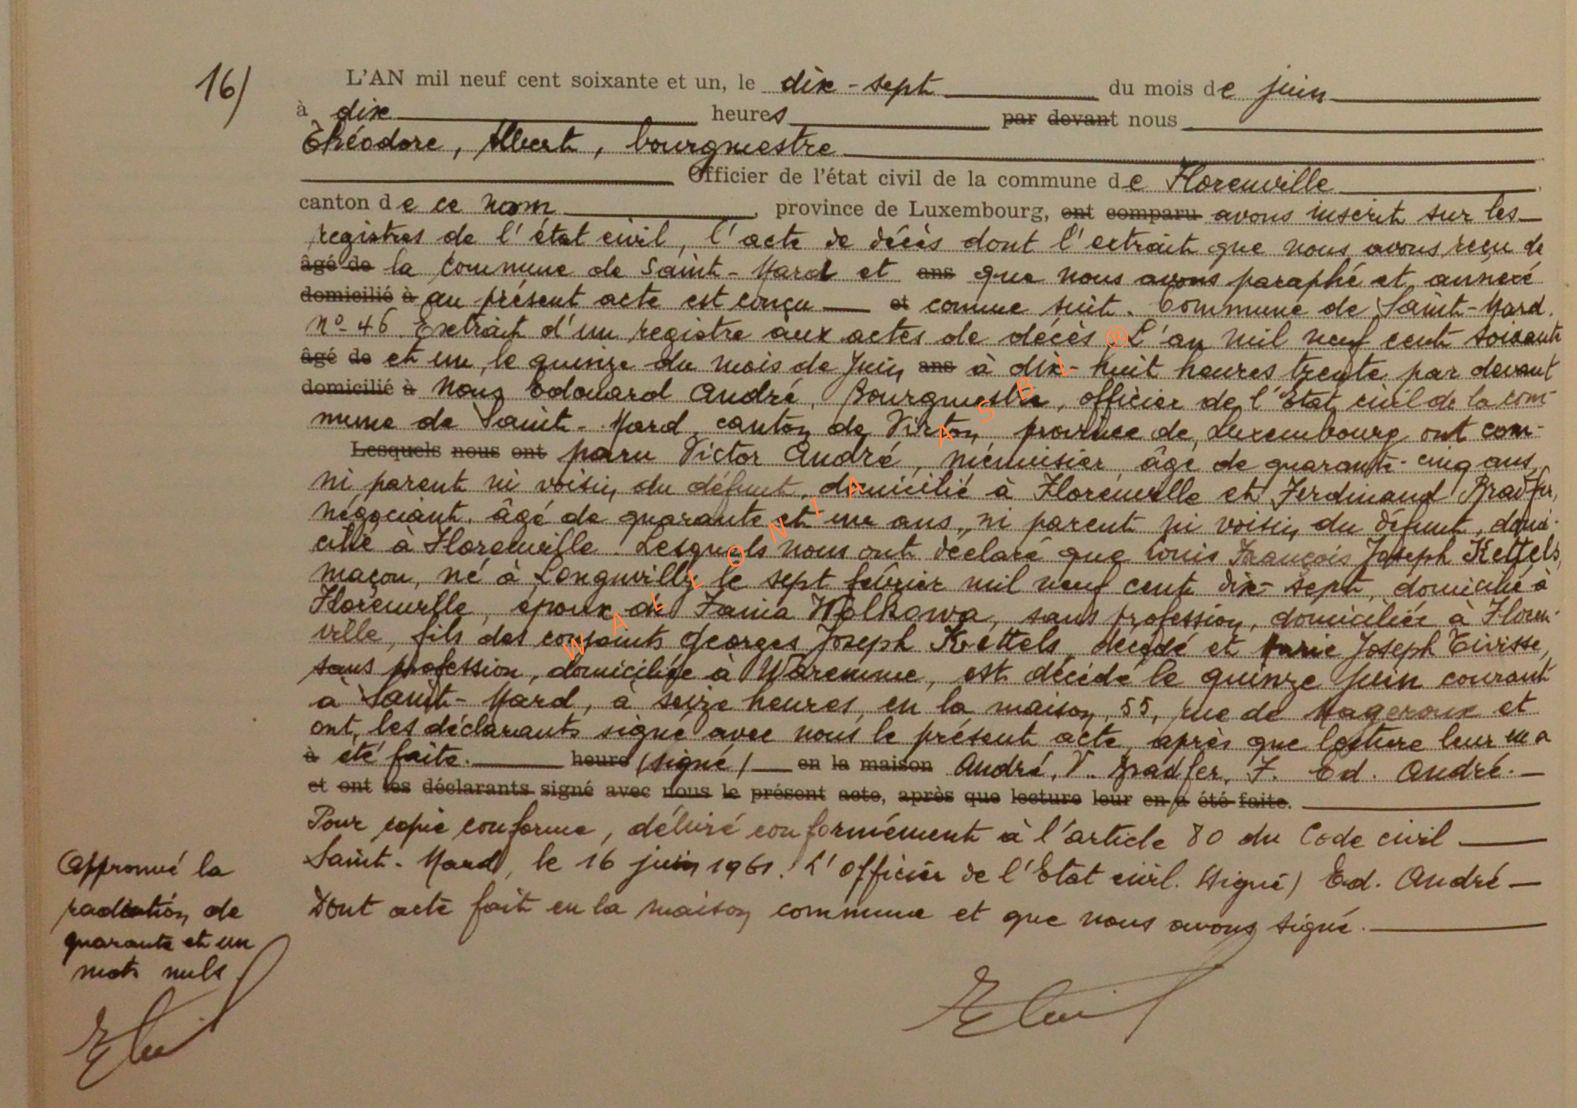 16/
L'AN mil neuf cent soixante et un, le dix-sept du mois de juin
à dix heures par devant nous
Théodore, Albert, bourgmestre
Officier de l'état civil de la commune de Florenville
canton de ce nom, province de Luxembourg, ont comparu avons inscrit sur les
registres de l'état civil, l'acte de décès dont l'extrait que nous avons reçu de
âgé de la commune de Saint-Mard et ans que nous avons paraphé et annexé
domicilié à au présent acte est conçu et comme suit. Commune de Saint-Mard.
N° 46 Extrait d'un registre aux actes de décès L'an mil neuf cent soixante
âgé de et un, le quinze du mois de juin ans à dix-huit heures trente par devant
domicilié à Nous Edouard André, Bourgmestre, officier de l'Etat civil de la com-
mune de Saint-Mard, canton de Virton, province de Luxembourg ont com-
Lesquels nous ont paru Victor André, menuisier âgé de quarante-cinq ans,
ni parent ni voisin du défunt, domicilié à Florenville et Ferdinand Bradfer,
négociant, âgé de quarante et un ans, ni parent ni voisin du défunt, domi-
cilié à Florenville. Lesquels nous ont déclaré que Louis François Joseph Kettels,
maçon, né à Longwilly le sept février mil neuf cent dix-sept, domicilié à
Florenville, époux de Fania Wolkowa, sans profession, domiciliée à Floren-
ville, fils des conjoints Georges Joseph Kettels, décédé et Marie Joseph
sans profession, domiciliée à Waremme, est décédé le quinze juin courant
à Saint-Mard, à seize heures, en la maison, 55, rue de Mageroux et
ont, les déclarants signé avec nous le présent acte, après que lecture leur en a
à été faite. heure (signé) en la maison André, V. Bradfer, F. Ed. André.
et ont les déclarants signé avec nous le présent acte, après que lecture leur en a été faite.
Pour copie conforme, délivré conformément à l'article 80 du Code civil
Saint-Mard, le 16 juin 1961. L'officier de l'Etat civil. (signé) Ed. André
Dont acte fait en la maison commune et que nous avons signé.
Approuvé la
radiation de
quarante et un
mots nuls
WALLONIA ASBL @